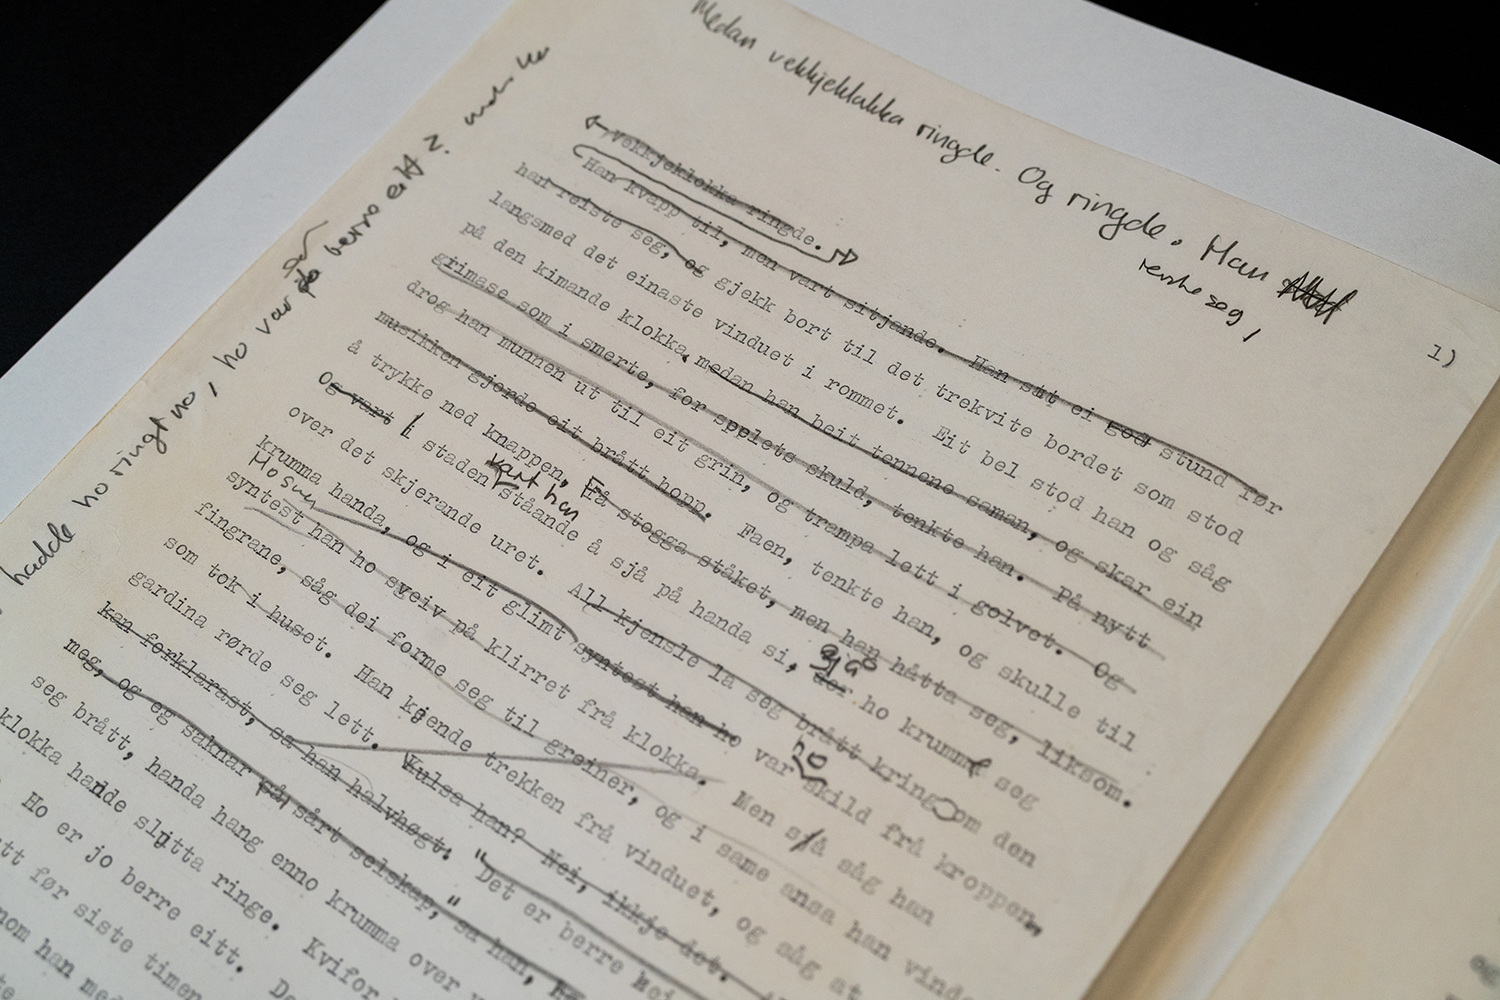 Medan vekkjeklokka ringde. Og ringde. Han
reiste seg,
1)
vekkjeklokka ringde.
Han kvapp til, men vart sitjande. Han sat ei god stund før
han reiste seg, og gjekk bort til det trekvite bordet som stod
langsmed det einaste vinduet i rommet. Eit bel stod han og såg
på den kimande klokka, medan han beit tennene saman, og skar ein
grimase som i smerte, for spelets skuld, tenkte han. På nytt
drog han munnen ut til eit grin, og trampa lett i golvet. Og
musikken gjorde eit brått hopp. Faen, tenkte han, og skulle til
å trykke ned knappen, Få stogga ståket, men han håtta seg, liksom.
Og vart i staden vart han ståande å sjå på handa si, sjå ho krumme seg
over det skjerande uret. All kjensle la seg brått kring om den
krumma handa, og i eit glimt syntest han ho var ho skild frå kroppen,
syntest han ho sveiv på klirret frå klokka. Men så såg han
fingrane, såg dei forme seg til greiner, og i same ansa han vinden
som tok i huset. Han kjende trekken frå vinduet, og såg at
gardina rørde seg lett. Kulsa han? Nei, ikkje det.
kan forklarast, sa han halvhøgt. "Det er berre
meg, og eg saknar så sårt selskap," sa han,
seg brått, handa hang enno krumma over
klokka hadde slutta ringe. Kvifor
Ho er jo berre eitt.
før siste timen
han
hadde ho ringt no, ho var jo berre eitt